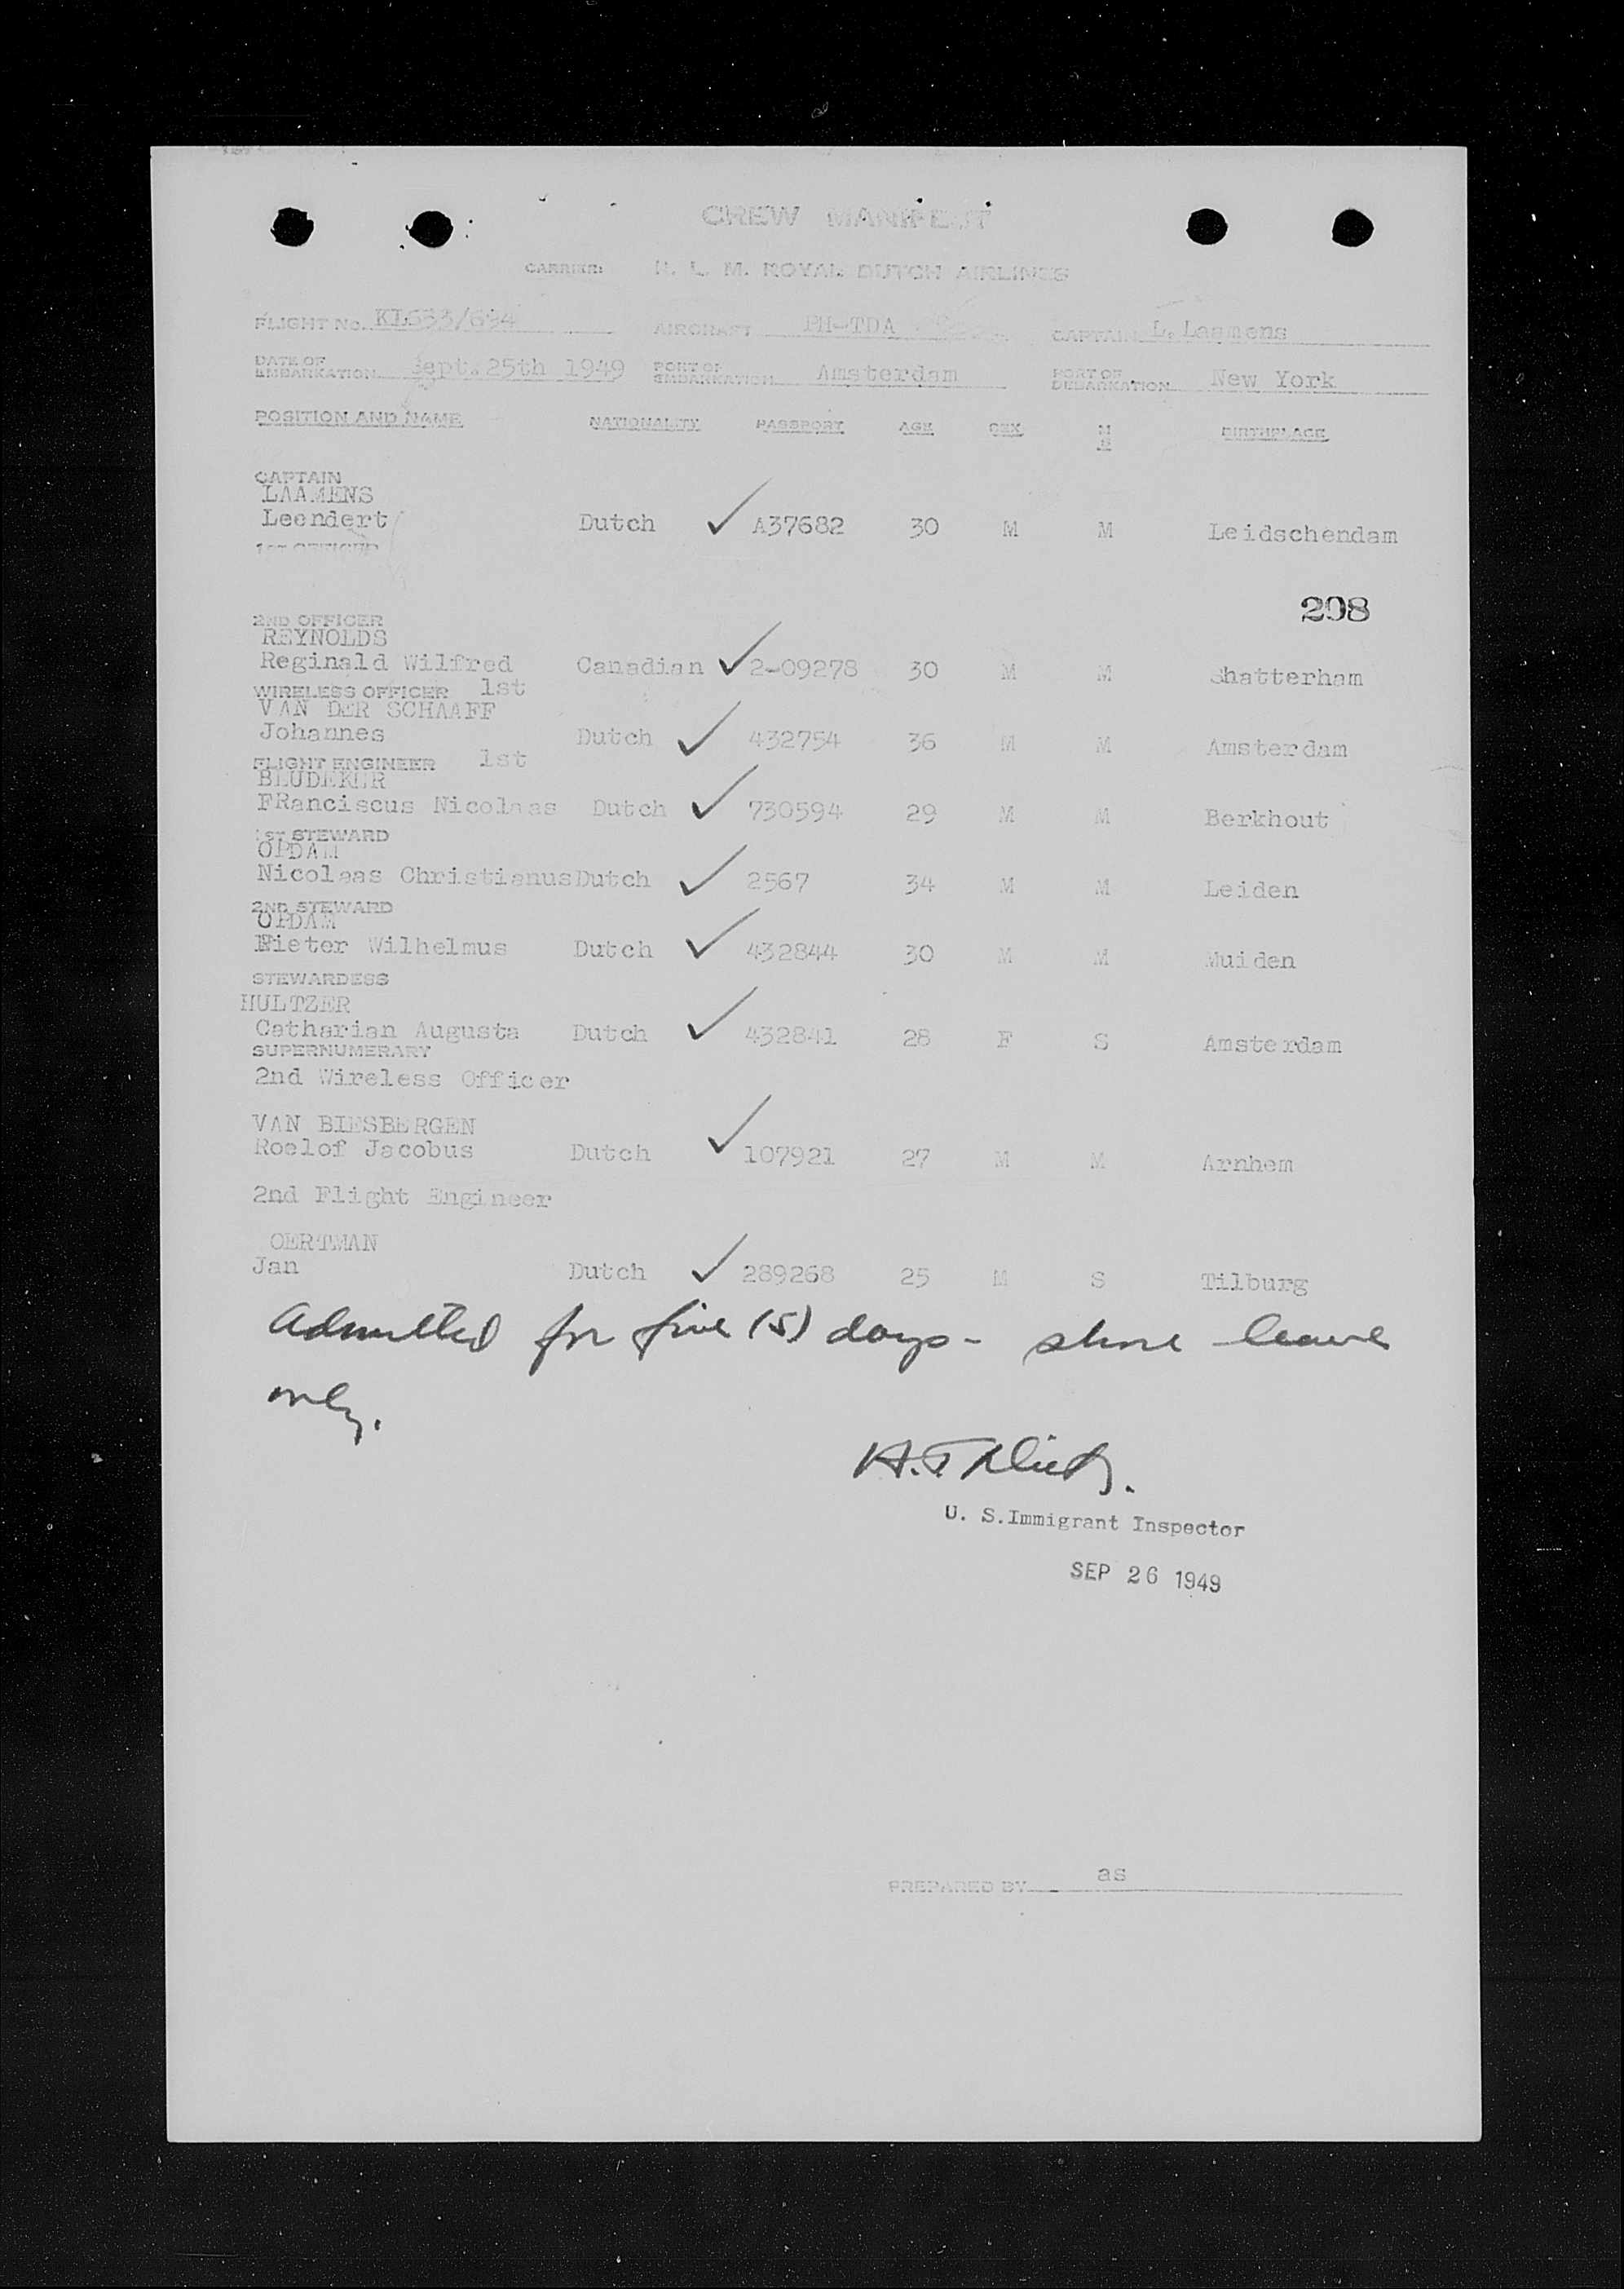 CREW MANIFEST
CARRIER: K. L. M. ROYAL DUTCH AIRLINES
FLIGHT No. KL633/634 AIRCRAFT PH-TDA CAPTAIN L. Laamens
DATE OF EMBARKATION Sept. 25th 1949 PORT OF EMBARKATION Amsterdam PORT OF DEBARKATION New York
POSITION AND NAME NATIONALITY PASSPORT AGE SEX M S BIRTHPLACE
CAPTAIN
LAAMENS
Leendert Dutch ✓ A37682 30 M M Leidschendam
1ST OFFICER
208
2ND OFFICER
REYNOLDS
Reginald Wilfred Canadian ✓ 2-09278 30 M M Shatterham
WIRELESS OFFICER 1st
VAN DER SCHAAFF
Johannes Dutch ✓ 432754 36 M M Amsterdam
FLIGHT ENGINEER 1st
BEUDEKER
FRanciscus Nicolaas Dutch ✓ 730594 29 M M Berkhout
1ST STEWARD
OPDAM
Nicolaas Christianus Dutch ✓ 2567 34 M M Leiden
2ND STEWARD
OPDAM
Pieter Wilhelmus Dutch ✓ 432844 30 M M Muiden
STEWARDESS
HULTZER
Catharian Augusta Dutch ✓ 432841 28 F S Amsterdam
SUPERNUMERARY
2nd Wireless Officer
VAN BIESBERGEN
Roelof Jacobus Dutch ✓ 107921 27 M M Arnhem
2nd Flight Engineer
OERTMAN
Jan Dutch ✓ 289268 25 M S Tilburg
Admitted for five (5) days - shore leave
only.
U. S. Immigrant Inspector
SEP 26 1949
PREPARED BY as